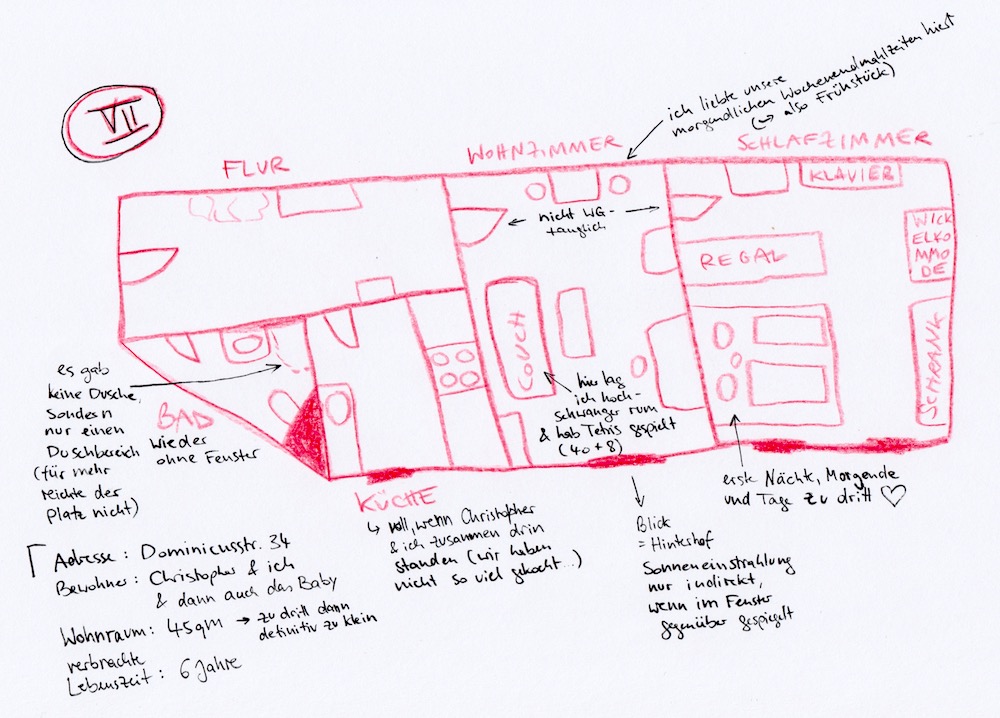 VII
ich liebte unsere
morgendlichen Wochenendmahlzeiten hier!
(↪ also Frühstück)
FLUR
WOHNZIMMER
SCHLAFZIMMER
KLAVIER
nicht WG-
tauglich
WICK
ELKO
MMO
DE
REGAL
COUCH
SCHRANK
es gab
keine Dusche,
sondern
nur einen
Duschbereich
(für mehr
reichte der
Platz nicht)
BAD
wieder
ohne Fenster
hier lag
ich hoch-
schwanger rum
& hab Tetris gespielt
(40+8)
KÜCHE
↳ voll, wenn Christopher
& ich zusammen drin
standen (wir haben
nicht so viel gekocht...)
erste Nächte, Morgende
und Tage zu dritt ♡
Blick
= Hinterhof
Sonneneinstrahlung
nur indirekt,
wenn im Fenster
gegenüber gespiegelt
Adresse: Dominicusstr. 34
Bewohner: Christopher & ich
& dann auch das Baby
Wohnraum: 45qm → zu dritt dann
definitiv zu klein
verbrachte
Lebenszeit: 6 Jahre